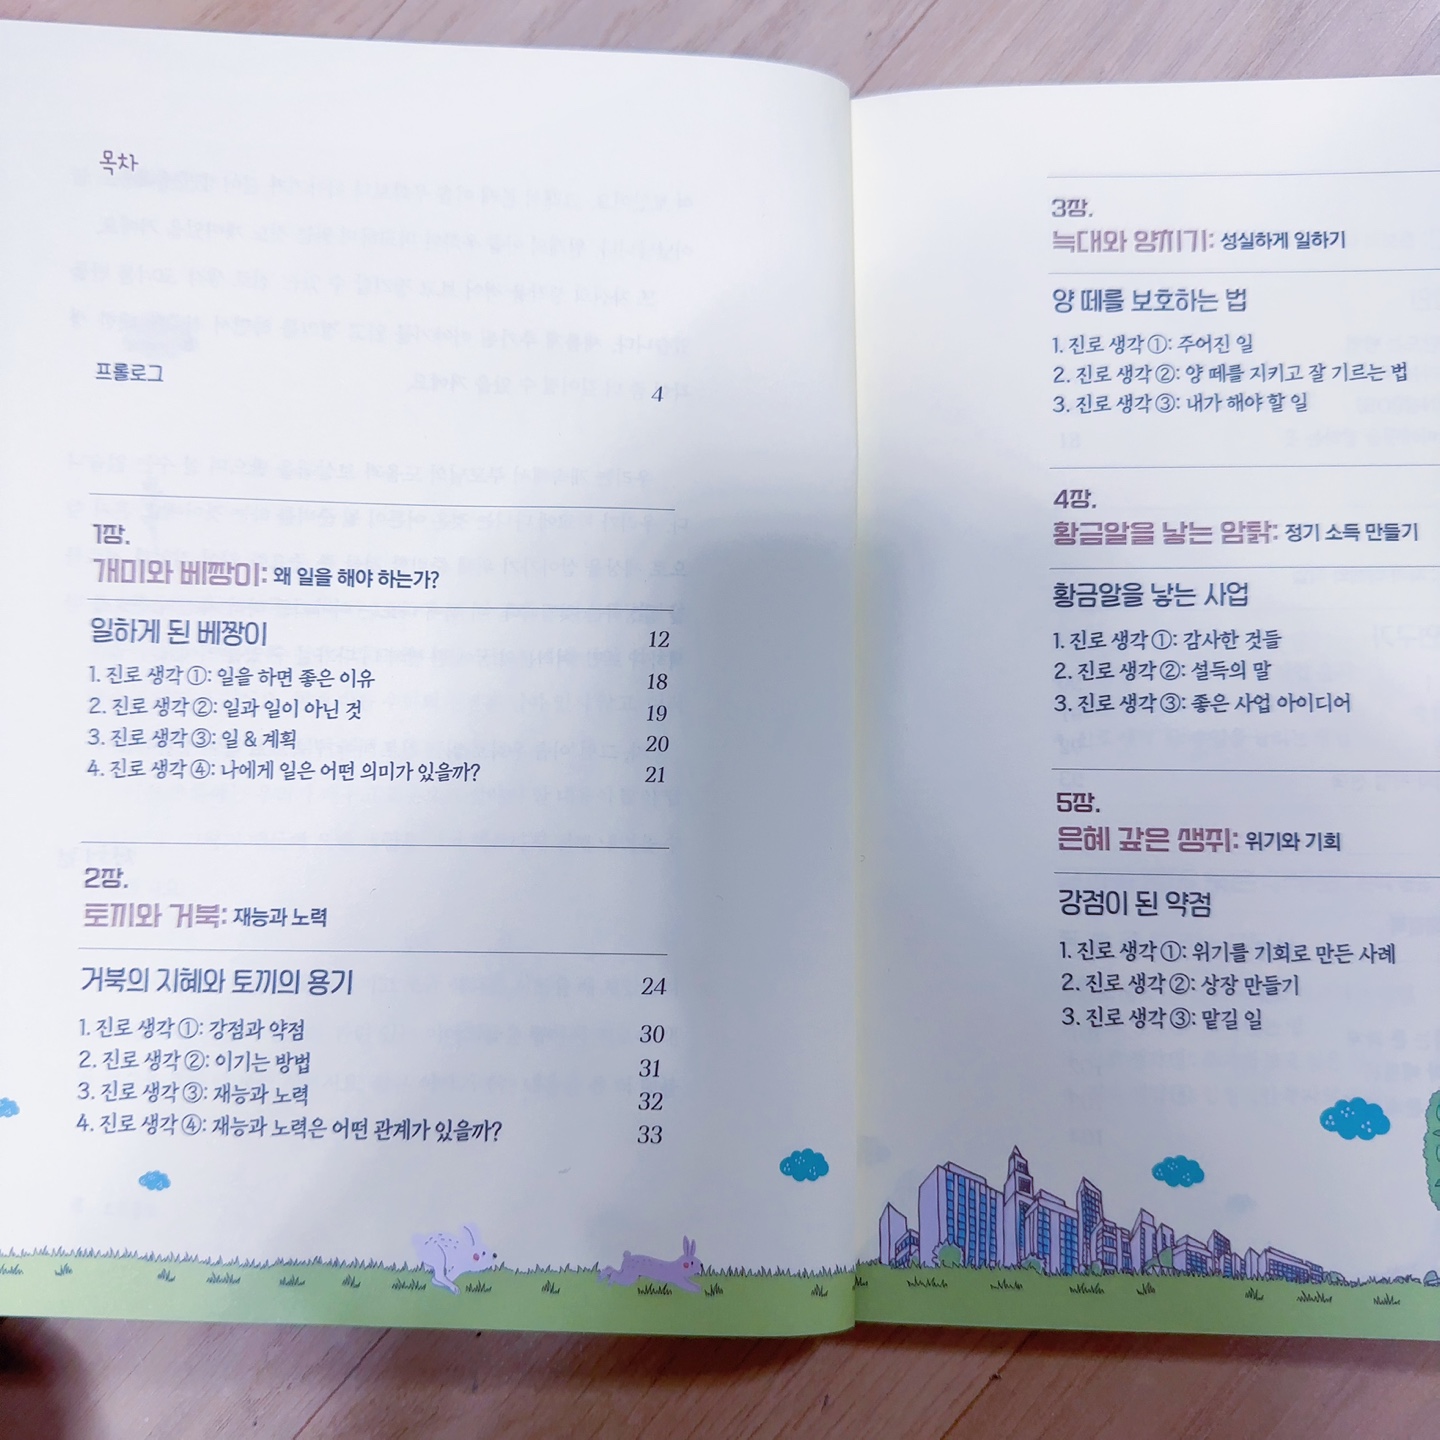 목차
프롤로그 4
1장.
개미와 베짱이: 왜 일을 해야 하는가?
일하게 된 베짱이 12
1. 진로 생각①: 일을 하면 좋은 이유 18
2. 진로 생각②: 일과 일이 아닌 것 19
3. 진로 생각③: 일 & 계획 20
4. 진로 생각④: 나에게 일은 어떤 의미가 있을까? 21
2장.
토끼와 거북: 재능과 노력
거북의 지혜와 토끼의 용기 24
1. 진로 생각①: 강점과 약점 30
2. 진로 생각②: 이기는 방법 31
3. 진로 생각③: 재능과 노력 32
4. 진로 생각④: 재능과 노력은 어떤 관계가 있을까? 33
3장.
늑대와 양치기: 성실하게 일하기
양 떼를 보호하는 법
1. 진로 생각①: 주어진 일
2. 진로 생각②: 양 떼를 지키고 잘 기르는 법
3. 진로 생각③: 내가 해야 할 일
4장.
황금알을 낳는 암탉: 정기 소득 만들기
황금알을 낳는 사업
1. 진로 생각①: 감사한 것들
2. 진로 생각②: 설득의 말
3. 진로 생각③: 좋은 사업 아이디어
5장.
은혜 갚은 생쥐: 위기와 기회
강점이 된 약점
1. 진로 생각①: 위기를 기회로 만든 사례
2. 진로 생각②: 상장 만들기
3. 진로 생각③: 맡길 일